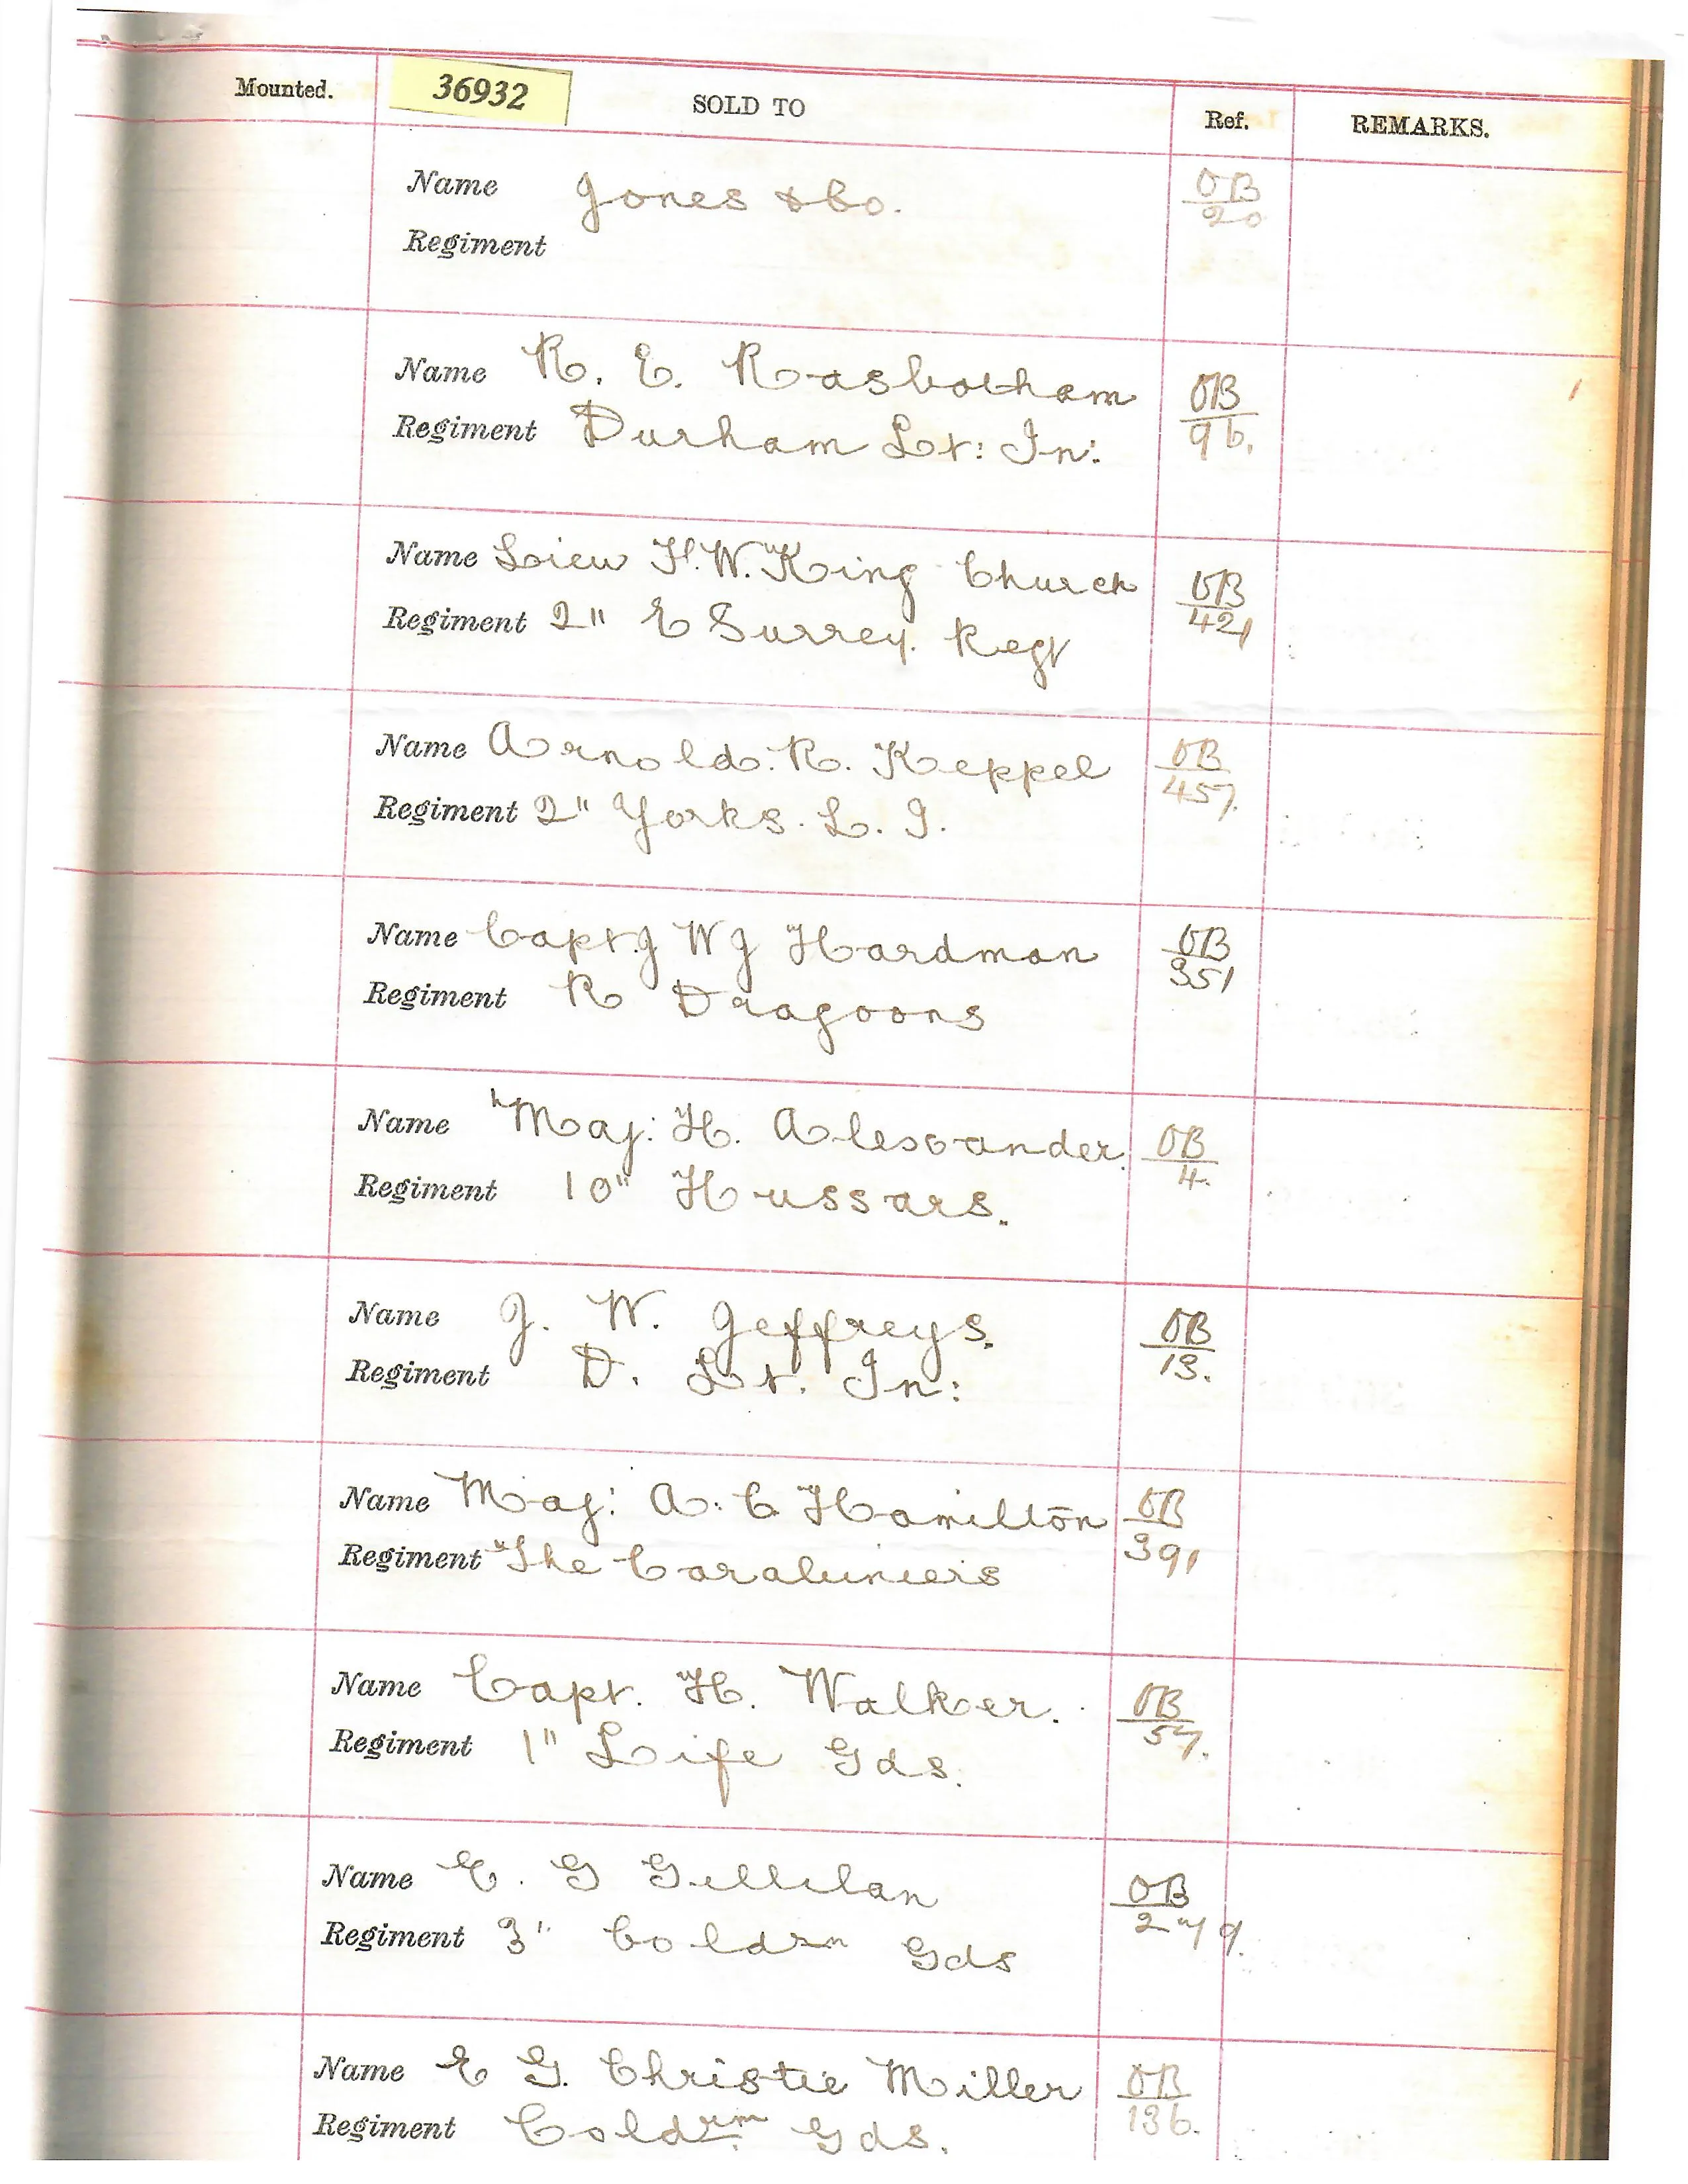 Mounted. 36932 SOLD TO Ref. REMARKS.
Name Jones & Co. OB
20
Regiment
Name R. E. Rasbotham OB
Regiment Durham Lt: In: 96.
Name Lieu H.W. King Church OB
Regiment 2" E Surrey. Regt 421
Name Arnold. R. Keppel OB
Regiment 2" Yorks. L. I. 457.
Name Capt. J W J Hardman OB
351
Regiment R Dragoons
Name Maj: H. Alexander. OB
Regiment 10" Hussars. 4.
Name J. W. Jeffreys. OB
Regiment D. Lt. In: 13.
Name Maj: A. C Hamilton OB
Regiment "The Carabiniers 391
Name Capt. H. Walker. OB
Regiment 1" Life Gds. 57.
Name E. G Gillilan OB
Regiment 3" Coldsm Gds 279.
Name E G. Christie Miller OB
Regiment Coldsm Gds. 136.